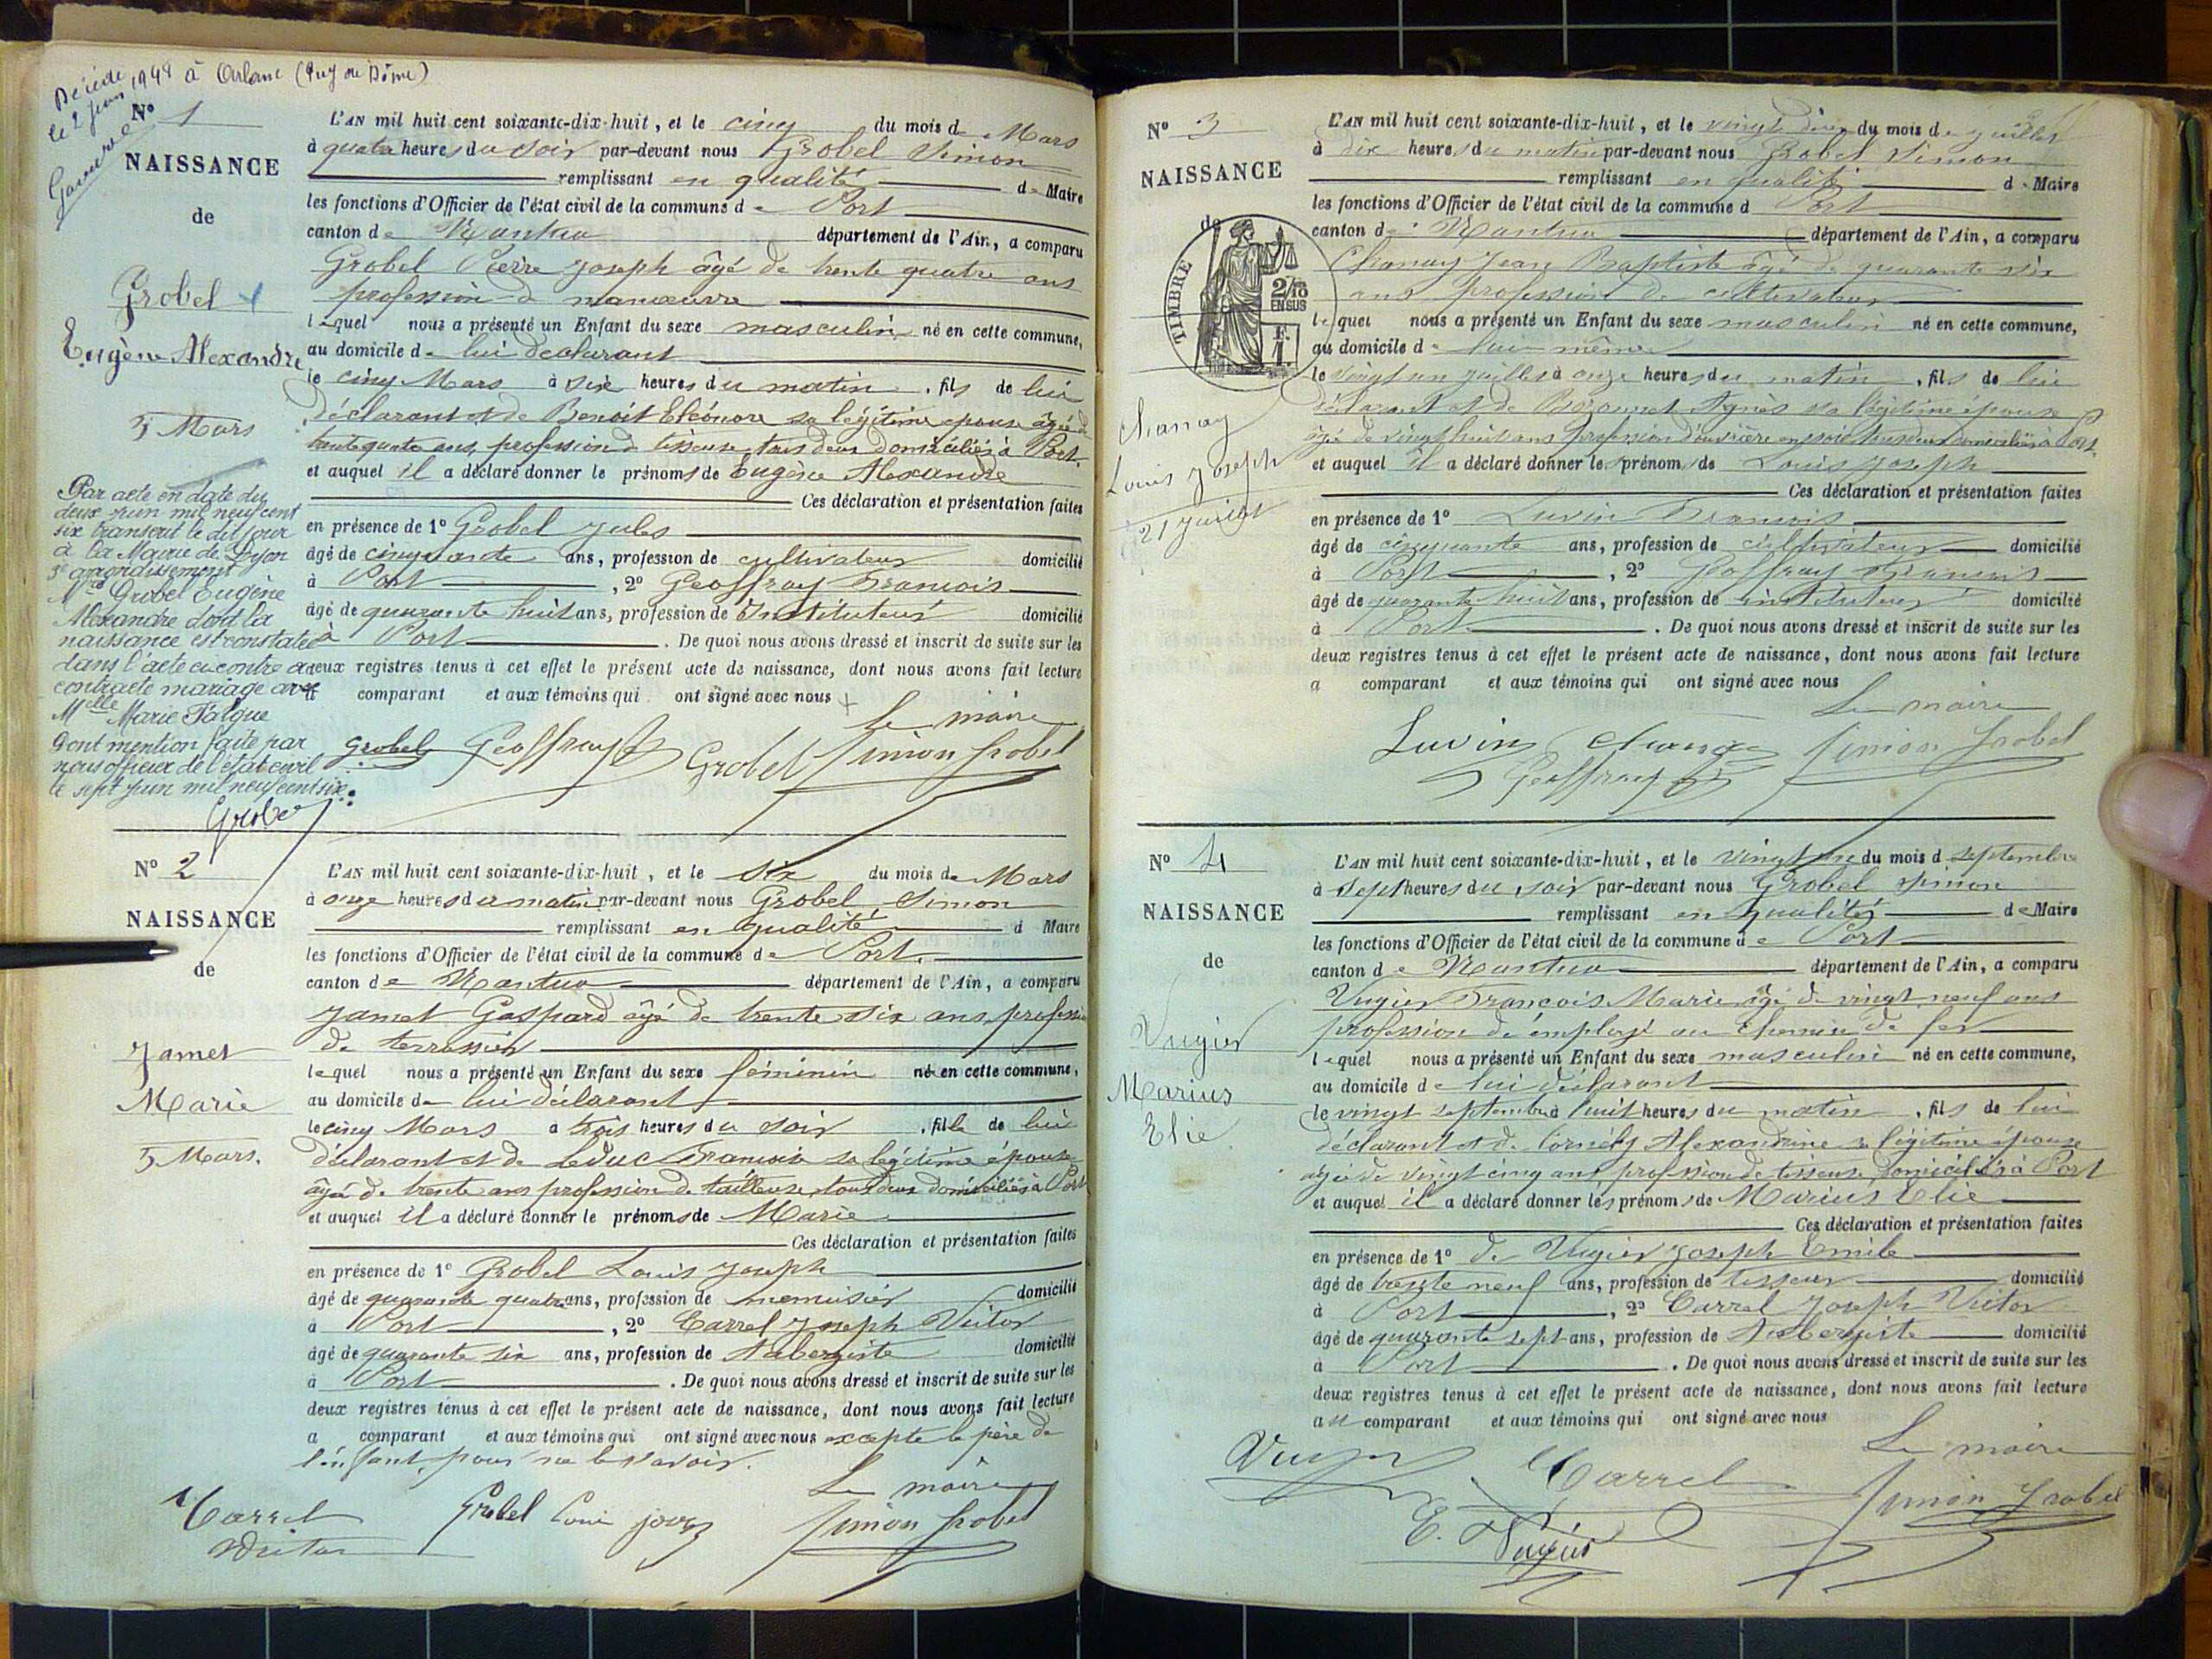 Décédé
le 2 Juin 1948 à Arlanc (Puy de Dôme)
N° 1
NAISSANCE
de
Grobel
Eugène Alexandre
5 Mars
Par acte en date du
deux juin mil neuf cent
six transcrit le dit jour
à la Mairie de Lyon
3e arrondissement
Mr Grobel Eugène
Alexandre dont la
naissance est constatée
dans l'acte ci contre a
contracté mariage avec
Melle Marie Falque
Dont mention faite par
nous officier de l'état civil
le sept juin mil neuf cent six.
Grobel
L'AN mil huit cent soixante-dix-huit, et le cinq du mois de Mars
à quatre heures du soir par-devant nous Grobel Simon
remplissant en qualité de Maire
les fonctions d'Officier de l'état civil de la commune de Port
canton de Nantua département de l'Ain, a comparu
Grobel Pierre Joseph âgé de trente quatre ans
profession de manœuvre
lequel nous a présenté un Enfant du sexe masculin né en cette commune,
au domicile de lui déclarant
le cinq Mars à six heures du matin, fils de lui
déclarant et de Benoit Eléonore sa légitime épouse âgée de
trente quatre ans, profession de tisseuse, tous deux domiciliés à Port.
et auquel il a déclaré donner le prénoms de Eugène Alexandre
Ces déclaration et présentation faites
en présence de 1° Grobel Jules
âgé de cinquante ans, profession de cultivateur domicilié
à Port, 2° Geoffray François
âgé de quarante huit ans, profession de Instituteur domicilié
à Port. De quoi nous avons dressé et inscrit de suite sur les
deux registres tenus à cet effet le présent acte de naissance, dont nous avons fait lecture
au comparant et aux témoins qui ont signé avec nous
Le maire
Grobel Geoffray Grobel Simon Grobel
N° 2
NAISSANCE
de
Jamet
Marie
5 Mars.
L'AN mil huit cent soixante-dix-huit, et le six du mois de Mars
à onze heures du matin par-devant nous Grobel Simon
remplissant en qualité d Maire
les fonctions d'Officier de l'état civil de la commune de Port.
canton de Nantua département de l'Ain, a comparu
Jamet Gaspard âgé de trente six ans, profession
de terrassier
lequel nous a présenté un Enfant du sexe féminin né en cette commune,
au domicile de lui déclarant
le cinq Mars à trois heures du soir, fille de lui
déclarant et de Leduc Françoise sa légitime épouse
âgée de trente ans profession de tailleuse, tous deux domiciliés à Port
et auquel il a déclaré donner le prénoms de Marie
Ces déclaration et présentation faites
en présence de 1° Grobel Louis Joseph
âgé de quarante quatre ans, profession de menuisier domicilié
à Port, 2° Carrel Joseph Victor
âgé de quarante six ans, profession de Aubergiste domicilié
à Port. De quoi nous avons dressé et inscrit de suite sur les
deux registres tenus à cet effet le présent acte de naissance, dont nous avons fait lecture
a comparant et aux témoins qui ont signé avec nous excepté le père de
l'enfant, pour ne le savoir.
Le maire
Carrel Grobel Simon Grobel
Victor
N° 3
NAISSANCE
de
TIMBRE
2/10
EN SUS
F.
1.
Chanay
Louis Joseph
21 Juillet
L'AN mil huit cent soixante-dix-huit, et le vingt deux du mois de Juillet
à dix heures du matin par-devant nous Grobel Simon
remplissant en qualité d Maire
les fonctions d'Officier de l'état civil de la commune d Port
canton de Nantua département de l'Ain, a comparu
Chanay Jean Baptiste âgé de quarante six
ans profession de cultivateur
lequel nous a présenté un Enfant du sexe masculin né en cette commune,
au domicile de lui même
le vingt un juillet à onze heures du matin, fils de lui
déclarant et de Agnès sa légitime épouse
âgée de vingt huit ans profession d'ouvrière en soie tous deux domiciliés à Port.
et auquel il a déclaré donner les prénoms de Louis Joseph
Ces déclaration et présentation faites
en présence de 1° Luvin François
âgé de cinquante ans, profession de cultivateur domicilié
à Port, 2° Geoffray François
âgé de quarante huit ans, profession de instituteur domicilié
à Port. De quoi nous avons dressé et inscrit de suite sur les
deux registres tenus à cet effet le présent acte de naissance, dont nous avons fait lecture
a comparant et aux témoins qui ont signé avec nous
Le maire
Luvin Chanay Simon Grobel
Geoffray
N° 4
NAISSANCE
de
Vugier
Marius
Elie
L'AN mil huit cent soixante-dix-huit, et le vingt un du mois d septembre
à sept heures du soir par-devant nous Grobel Simon
remplissant en qualité de Maire
les fonctions d'Officier de l'état civil de la commune de Port
canton de Nantua département de l'Ain, a comparu
Vugier François Marie âgé de vingt neuf ans
profession de employé au Chemin de fer
lequel nous a présenté un Enfant du sexe masculin né en cette commune,
au domicile de lui déclarant
le vingt septembre à huit heures du matin, fils de lui
déclarant et de Cornély Alexandrine sa légitime épouse
âgée de vingt cinq ans profession de tisseuse domiciliés à Port
et auquel il a déclaré donner les prénoms de Marius Elie
Ces déclaration et présentation faites
en présence de 1° de Vugier Joseph Emile
âgé de trente neuf ans, profession de tisseur domicilié
à Port, 2° Carrel Joseph Victor
âgé de quarante sept ans, profession de Aubergiste domicilié
à Port. De quoi nous avons dressé et inscrit de suite sur les
deux registres tenus à cet effet le présent acte de naissance, dont nous avons fait lecture
au comparant et aux témoins qui ont signé avec nous
Le maire
Carrel Simon Grobel
E. Vugier